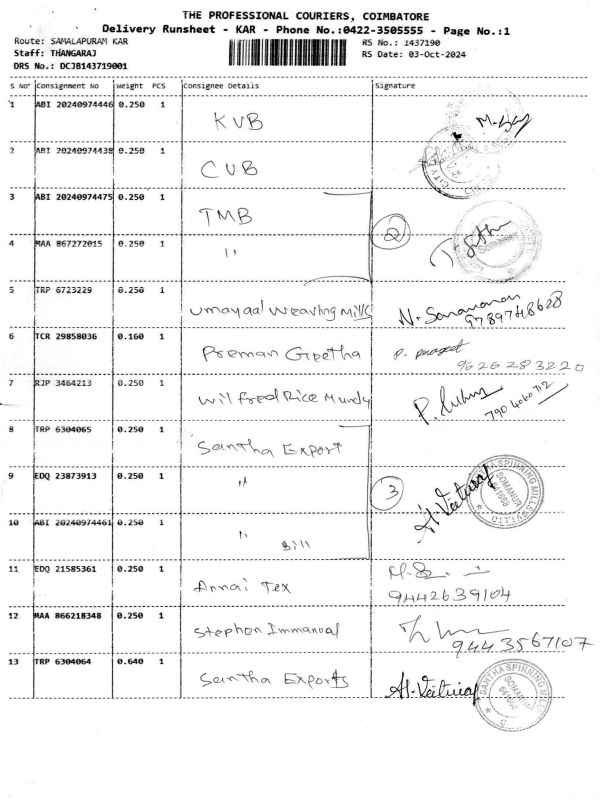 THE PROFESSIONAL COURIERS, COIMBATORE
Delivery Runsheet - KAR - Phone No.:0422-3505555 - Page No.:1
Route: SAMALAPURAM KAR RS No.: 1437190
Staff: THANGARAJ RS Date: 03-Oct-2024
DRS No.: DCJB143719001
S No Consignment No Weight PCS Consignee Details Signature
1 ABI 20240974446 0.250 1 KVB
2 ABI 20240974438 0.250 1 CUB
3 ABI 20240974475 0.250 1 TMB 2
4 MAA 867272015 0.250 1 "
5 TRP 6723229 0.250 1 Umayaal Weaving Mills N. Saravanan
9789748628
6 TCR 29858036 0.160 1 Preman Geetha
9626283220
7 RJP 3464213 0.250 1 Wilfred Rice Mundy
790 4060 712
8 TRP 6304065 0.250 1 Santha Export
9 EDQ 23873913 0.250 1 " 3
SANTHA SPINNING MILLS PVT LTD
SOMANUR
641668
10 ABI 20240974461 0.250 1 "
Bill
11 EDQ 21585361 0.250 1 Annai Tex
9442639104
12 MAA 866218348 0.250 1 Stephen Immanual
9443567107
13 TRP 6304064 0.640 1 Santha Exports
SANTHA SPINNING MILLS
SOMANUR